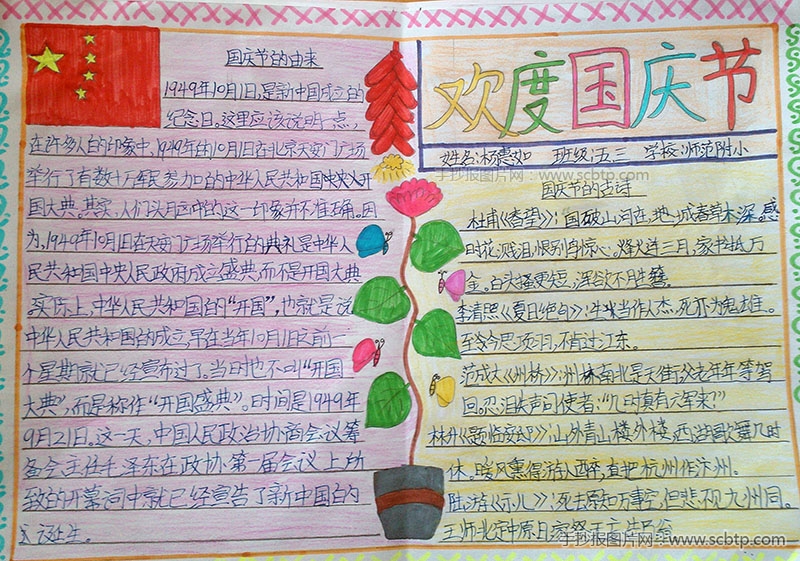 国庆节的由来
1949年10月1日,是新中国成立的
纪念日。这里应该说明一点,
在许多人的印象中,1949年的10月1日在北京天安门广场
举行了有数十万军民参加的中华人民共和国中央人开
国大典。其实,人们头脑中的这一印象并不准确。因
为,1949年10月1日在天安门广场举行的典礼是中华人
民共和国中央人民政府成立盛典,而不是开国大典
。实际上,中华人民共和国的“开国”,也就是说
中华人民共和国的成立,早在当年10月1日之前一
个星期就已经宣布过了。当时也不叫“开国
大典”,而是称作“开国盛典”。时间是1949年
9月21日。这一天,中国人民政治协商会议筹
备会主任毛泽东在政协第一届会议上所
致的开幕词中就已经宣告了新中国的
诞生。
欢度国庆节
姓名:杨惠如 班级:五.三 学校:师范附小
手抄报图片网:www.scbtp.com
国庆节的古诗
杜甫《春望》:国破山河在,地城春草木深。感
时花,溅泪,恨别鸟惊心。烽火连三月,家书抵万
金。白头搔更短,浑欲不胜簪。
李清照《夏日绝句》:生当作人杰,死亦为鬼雄。
至今今思项羽,不肯过江东。
范成大《州桥》:州桥南北是天街,父老年年等驾
回。忍泪失声问使者:“几时真有六军来?”
林升《题临安邸》:山外青山楼外楼,西湖歌舞几时
休。暖风熏得游人醉,直把杭州作汴州。
陆游《示儿》:死去原知万事空,但悲不见九州同。
王师北定中原日,家祭
手抄报图片网:www.scbtp.com